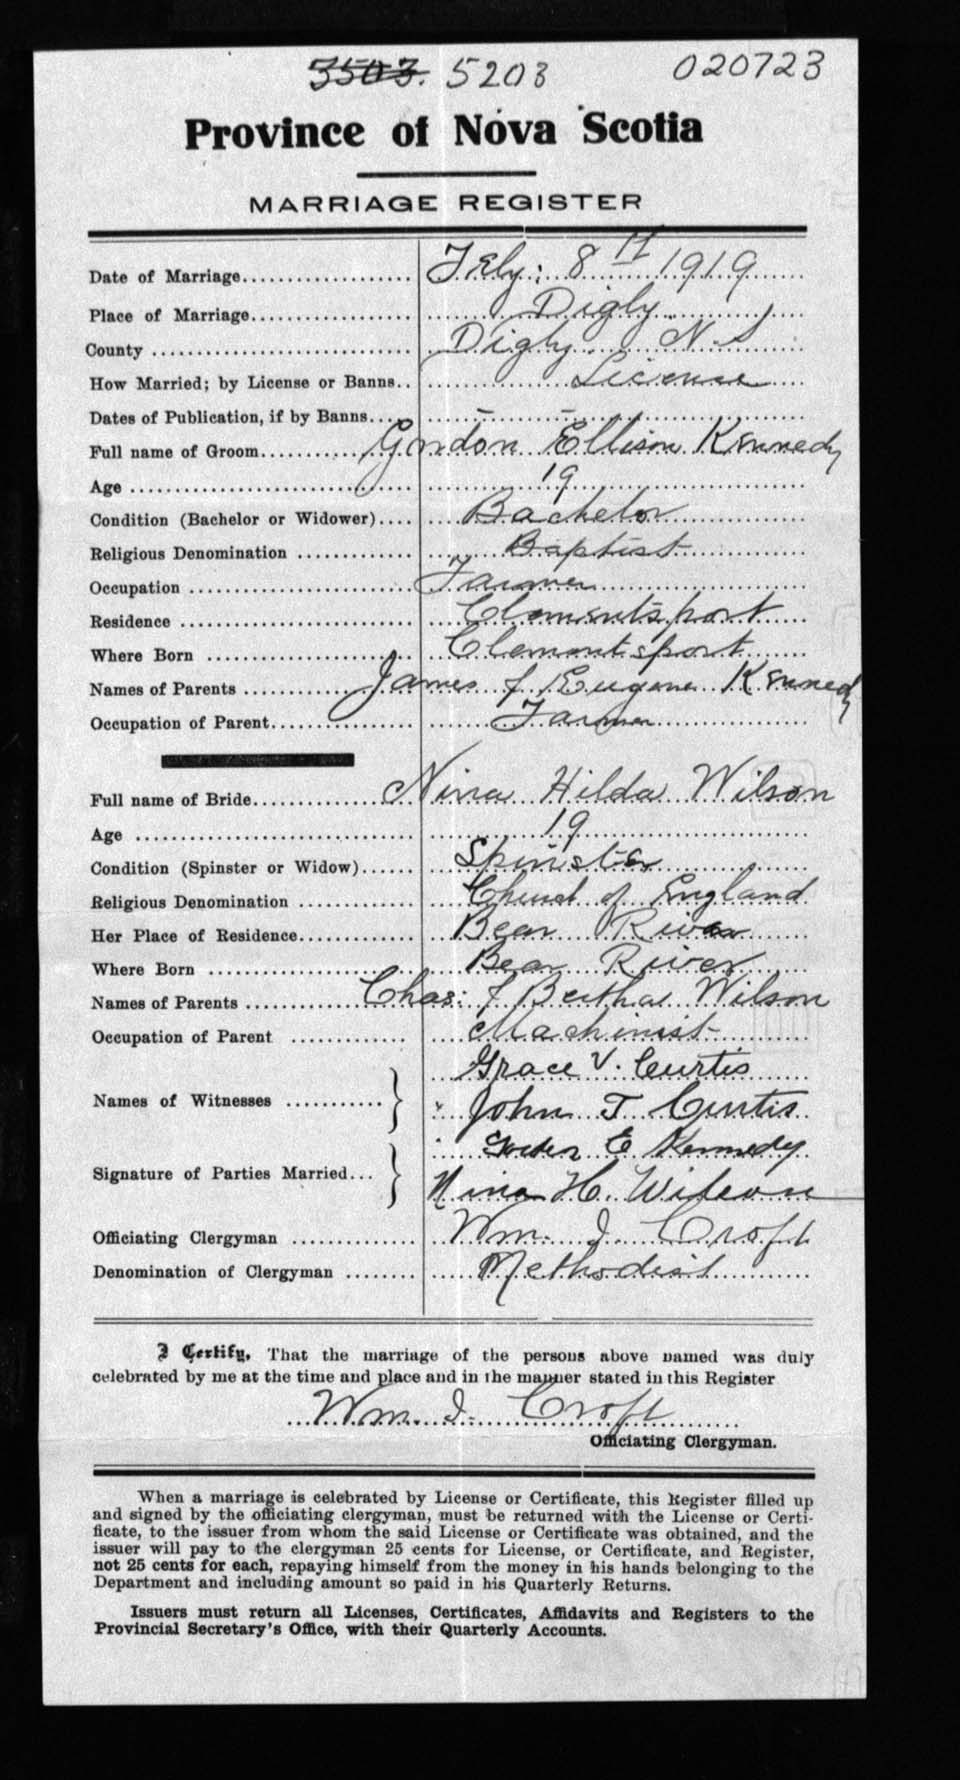 3503. 5203 020723
Province of Nova Scotia
MARRIAGE REGISTER
Date of Marriage.................. Feby: 8th 1919
Place of Marriage.................. Digby
County .................. Digby N.S
How Married; by License or Banns.. License
Dates of Publication, if by Banns.... – –
Full name of Groom............ Gordon Ellison Kennedy
Age .................. 19
Condition (Bachelor or Widower).... Bachelor
Religious Denomination ............ Baptist
Occupation .................. Farmer
Residence .................. Clementsport
Where Born .................. Clementsport
Names of Parents ............ James & Eugene Kennedy
Occupation of Parent............ Farmer
Full name of Bride............ Nina Hilda Wilson
Age .................. 19
Condition (Spinster or Widow)...... Spinster
Religious Denomination ............ Church of England
Her Place of Residence............ Bear River
Where Born .................. Bear River
Names of Parents ............ Chas: & Bertha Wilson
Occupation of Parent ............ Machinist
Grace V. Curtis
Names of Witnesses ............ } John T Curtis
E Kennedy
Signature of Parties Married... } Nina H. Wilson
Officiating Clergyman ............ Wm. I. Croft
Denomination of Clergyman ........ Methodist
I Certify, That the marriage of the persons above named was duly
celebrated by me at the time and place and in the manner stated in this Register
Wm. I. Croft
Officiating Clergyman.
When a marriage is celebrated by License or Certificate, this Register filled up
and signed by the officiating clergyman, must be returned with the License or Certi-
ficate, to the issuer from whom the said License or Certificate was obtained, and the
issuer will pay to the clergyman 25 cents for License, or Certificate, and Register,
not 25 cents for each, repaying himself from the money in his hands belonging to the
Department and including amount so paid in his Quarterly Returns.
Issuers must return all Licenses, Certificates, Affidavits and Registers to the
Provincial Secretary's Office, with their Quarterly Accounts.